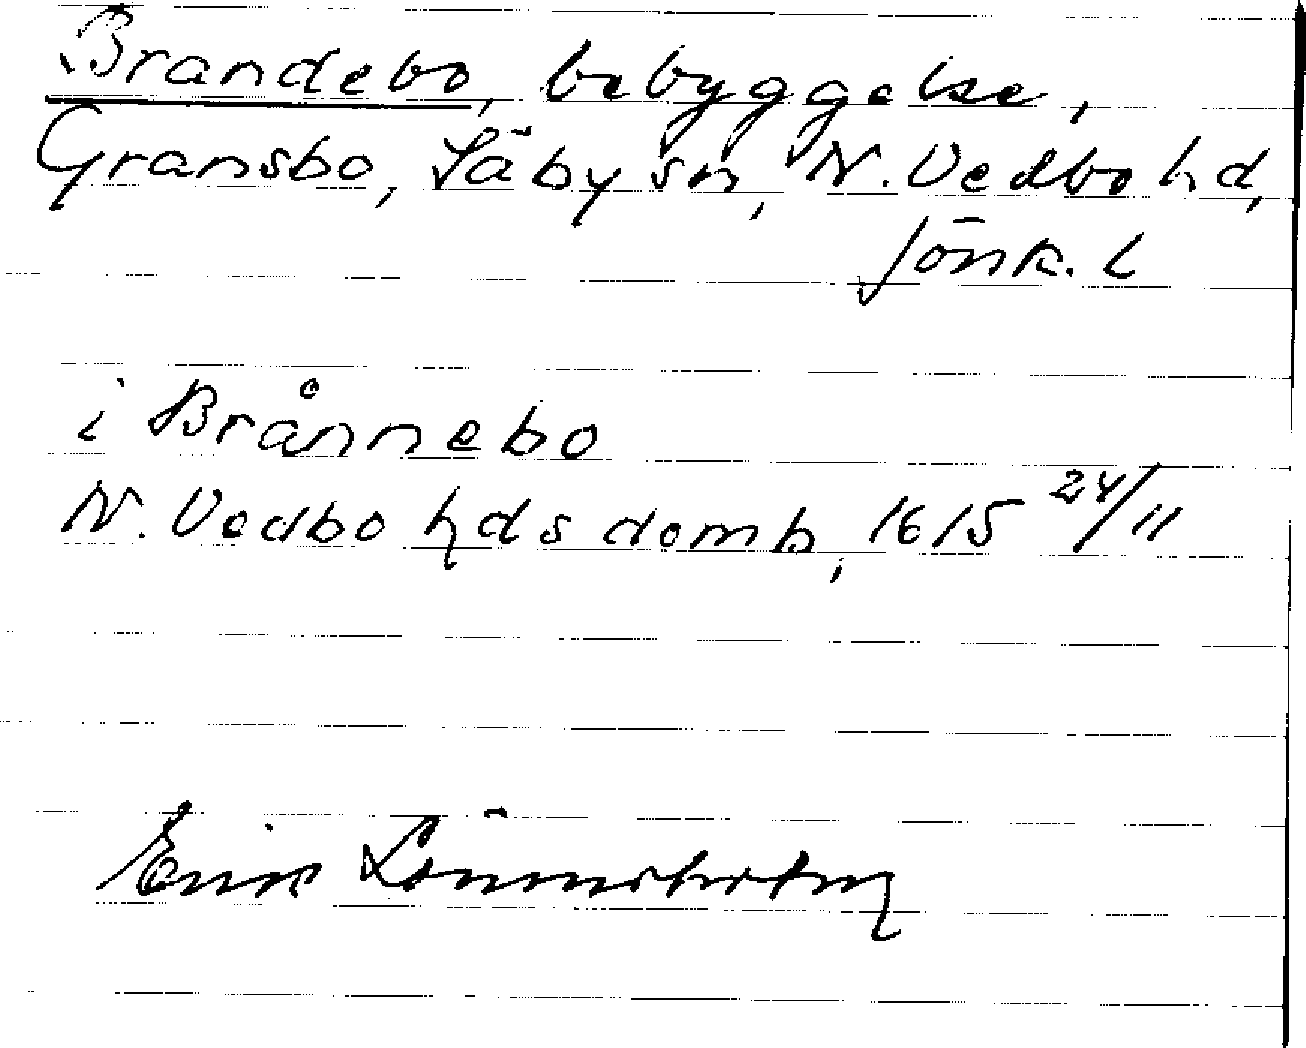 Brandebo, bebyggelse,
Gransbo, Säby sn, N. Vedbo hd,
Jönk. l
i Brånnebo
N. Vedbo hds domb, 1615 24/11
Erik Lönnerholm